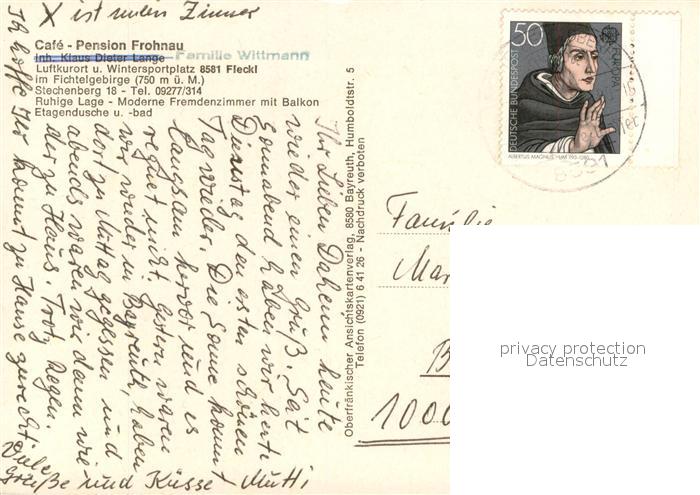 X ist mein Zimmer
Café - Pension Frohnau
Inh. Klaus Dieter Lange Familie Wittmann
Luftkurort u. Wintersportplatz 8581 Fleckl
im Fichtelgebirge (750 m ü. M.)
Stechenberg 18 - Tel. 09277/314
Ruhige Lage - Moderne Fremdenzimmer mit Balkon
Etagendusche u. -bad
Ihr Lieben Daheim heute
wieder einen Gruß. Seit
Sonnabend haben wir heute
Dienstag den ersten schönen
Tag wieder. Die Sonne kommt
langsam hervor und es
regnet nicht. Gestern waren
wir wieder in Bayreuth, haben
dort zu Mittag gegessen und
abends waren wir dann wie
der zu Haus. Trotz Regen.
Ich hoffe Ihr kommt zu Hause zurecht.
Viele
Grüße und Küsse Mutti
Oberfränkischer Ansichtskartenverlag, 8580 Bayreuth, Humboldtstr. 5
Telefon (0921) 6 41 26 - Nachdruck verboten
50
DEUTSCHE BUNDESPOST
EUROPA
ALBERTUS MAGNUS, 1193-1280
Familie
Mar
B
1000
privacy protection
Datenschutz